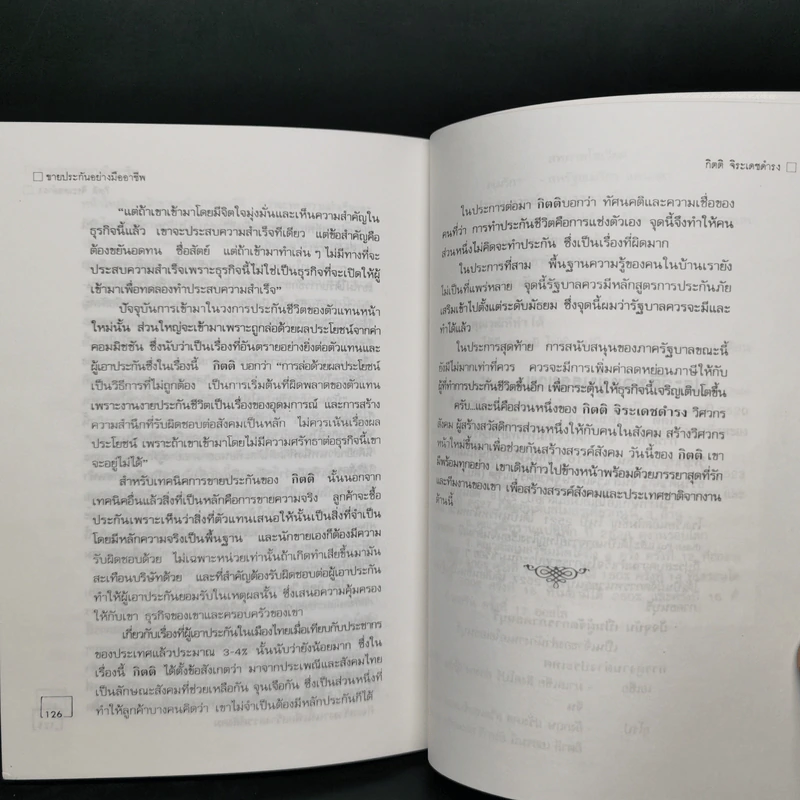 ขายประกันอย่างมืออาชีพ
"แต่ถ้าเขาเข้ามาโดยมีจิตใจมุ่งมั่นและเห็นความสำคัญใน
ธุรกิจนี้แล้ว เขาจะประสบความสำเร็จทีเดียว แต่ข้อสำคัญคือ
ต้องขยันอดทน ซื่อสัตย์ แต่ถ้าเข้ามาทำเล่น ๆ ไม่มีทางที่จะ
ประสบความสำเร็จเพราะธุรกิจนี้ไม่ใช่เป็นธุรกิจที่จะเปิดให้ผู้
เข้ามาเพื่อทดลองทำประสบความสำเร็จ"
ปัจจุบันการเข้ามาในวงการประกันชีวิตของตัวแทนหน้า
ใหม่นั้น ส่วนใหญ่จะเข้ามาเพราะถูกล่อด้วยผลประโยชน์จากค่า
คอมมิชชัน ซึ่งนับว่าเป็นเรื่องที่อันตรายอย่างยิ่งต่อตัวแทนและ
ผู้เอาประกันซึ่งในเรื่องนี้ กิตติ บอกว่า "การล่อด้วยผลประโยชน์
เป็นวิธีการที่ไม่ถูกต้อง เป็นการเริ่มต้นที่ผิดพลาดของตัวแทน
เพราะงานงายประกันชีวิตเป็นเรื่องของอุดมการณ์ และการสร้าง
ความสำนึกที่รับผิดชอบต่อสังคมเป็นหลัก ไม่ควรเน้นเรื่องผล
ประโยชน์ เพราะถ้าเขาเข้ามาโดยไม่มีความศรัทธาต่อธุรกิจนี้เขา
จะอยู่ไม่ได้"
สำหรับเทคนิคการขายประกันของ กิตติ นั้นนอกจาก
เทคนิคอื่นแล้วสิ่งที่เป็นหลักคือการขายความจริง ลูกค้าจะซื้อ
ประกันเพราะเห็นว่าสิ่งที่ตัวแทนเสนอให้นั้นเป็นสิ่งที่จำเป็น
โดยมีหลักความจริงเป็นพื้นฐาน และนักขายเองก็ต้องมีความ
รับผิดชอบด้วย ไม่เฉพาะหน่วยเท่านั้นถ้าเกิดทำเสียขึ้นมามัน
สะเทือนบริษัทด้วย และที่สำคัญต้องรับผิดชอบต่อผู้เอาประกัน
ทำให้ผู้เอาประกันยอมรับในเหตุผลนั้น ซึ่งเสนอความคุ้มครอง
ให้กับเขา ธุรกิจของเขาและครอบครัวของเขา
เกี่ยวกับเรื่องที่ผู้เอาประกันในเมืองไทยเมื่อเทียบกับประชากร
ของประเทศแล้วประมาณ 3-4% นั้นนับว่ายังน้อยมาก ซึ่งใน
เรื่องนี้ กิตติ ได้ตั้งข้อสังเกตว่า มาจากประเพณีและสังคมไทย
เป็นลักษณะสังคมที่ช่วยเหลือกัน จุนเจือกัน ซึ่งเป็นส่วนหนึ่งที่
ทำให้ลูกค้าบางคนคิดว่า เขาไม่จำเป็นต้องมีหลักประกันก็ได้
126
กิตติ จิระเดชดำรง
ในประการต่อมา กิตติบอกว่า ทัศนคติและความเชื่อของ
คนที่ว่า การทำประกันชีวิตคือการแช่งตัวเอง จุดนี้จึงทำให้คน
ส่วนหนึ่งไม่คิดจะทำประกัน ซึ่งเป็นเรื่องที่ผิดมาก
ในประการที่สาม พื้นฐานความรู้ของคนในบ้านเรายัง
ไม่เป็นที่แพร่หลาย จุดนี้รัฐบาลควรมีหลักสูตรการประกันภัย
เสริมเข้าไปตั้งแต่ระดับมัธยม ซึ่งจุดนี้ผมว่ารัฐบาลควรจะมีและ
ทำได้แล้ว
ในประการสุดท้าย การสนับสนุนของภาครัฐบาลขณะนี้
ยังมีไม่มากเท่าที่ควร ควรจะมีการเพิ่มค่าลดหย่อนภาษีให้กับ
ผู้ที่ทำการประกันชีวิตขึ้นอีก เพื่อกระตุ้นให้ธุรกิจนี้เจริญเติบโตขึ้น
ครับ...และนี่คือส่วนหนึ่งของ กิตติ จิระเดชดำรง วิศวกร
สังคม ผู้สร้างสวัสดิการส่วนหนึ่งให้กับคนในสังคม สร้างวิศวกร
หน้าใหม่ขึ้นมาเพื่อช่วยกันสร้างสรรค์สังคม วันนี้ของ กิตติ เขา
มีพร้อมทุกอย่าง เขาเดินก้าวไปข้างหน้าพร้อมด้วยภรรยาสุดที่รัก
และทีมงานของเขา เพื่อสร้างสรรค์สังคมและประเทศชาติจากงาน
ด้านนี้